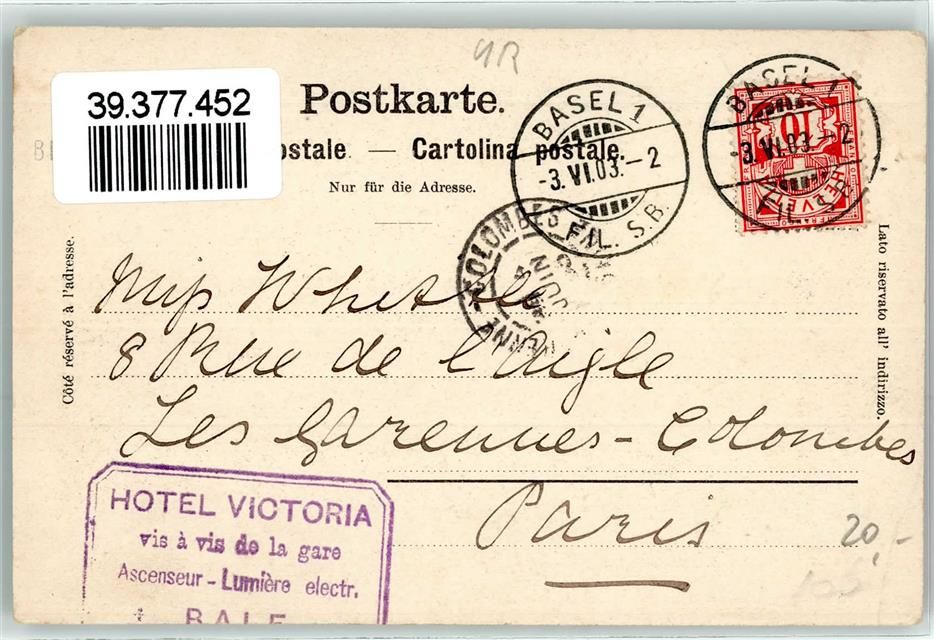 4R
39.377.452
Postkarte.
ostale — Cartolina postale.
Nur für die Adresse.
BASEL 1
-3.VI.03.-2
FIL. S.B.
BASEL 1
-3.VI.03.-2
FIL. S.B.
10
HELVETIA
COLOMBES
JUIN
Côté réservé à l'adresse.
Lato riservato all' indirizzo.
Miss
8 Rue de l'Aigle
Les Garennes - Colombes
Paris
20,-
HOTEL VICTORIA
vis à vis de la gare
Ascenseur - Lumière electr.
BALE